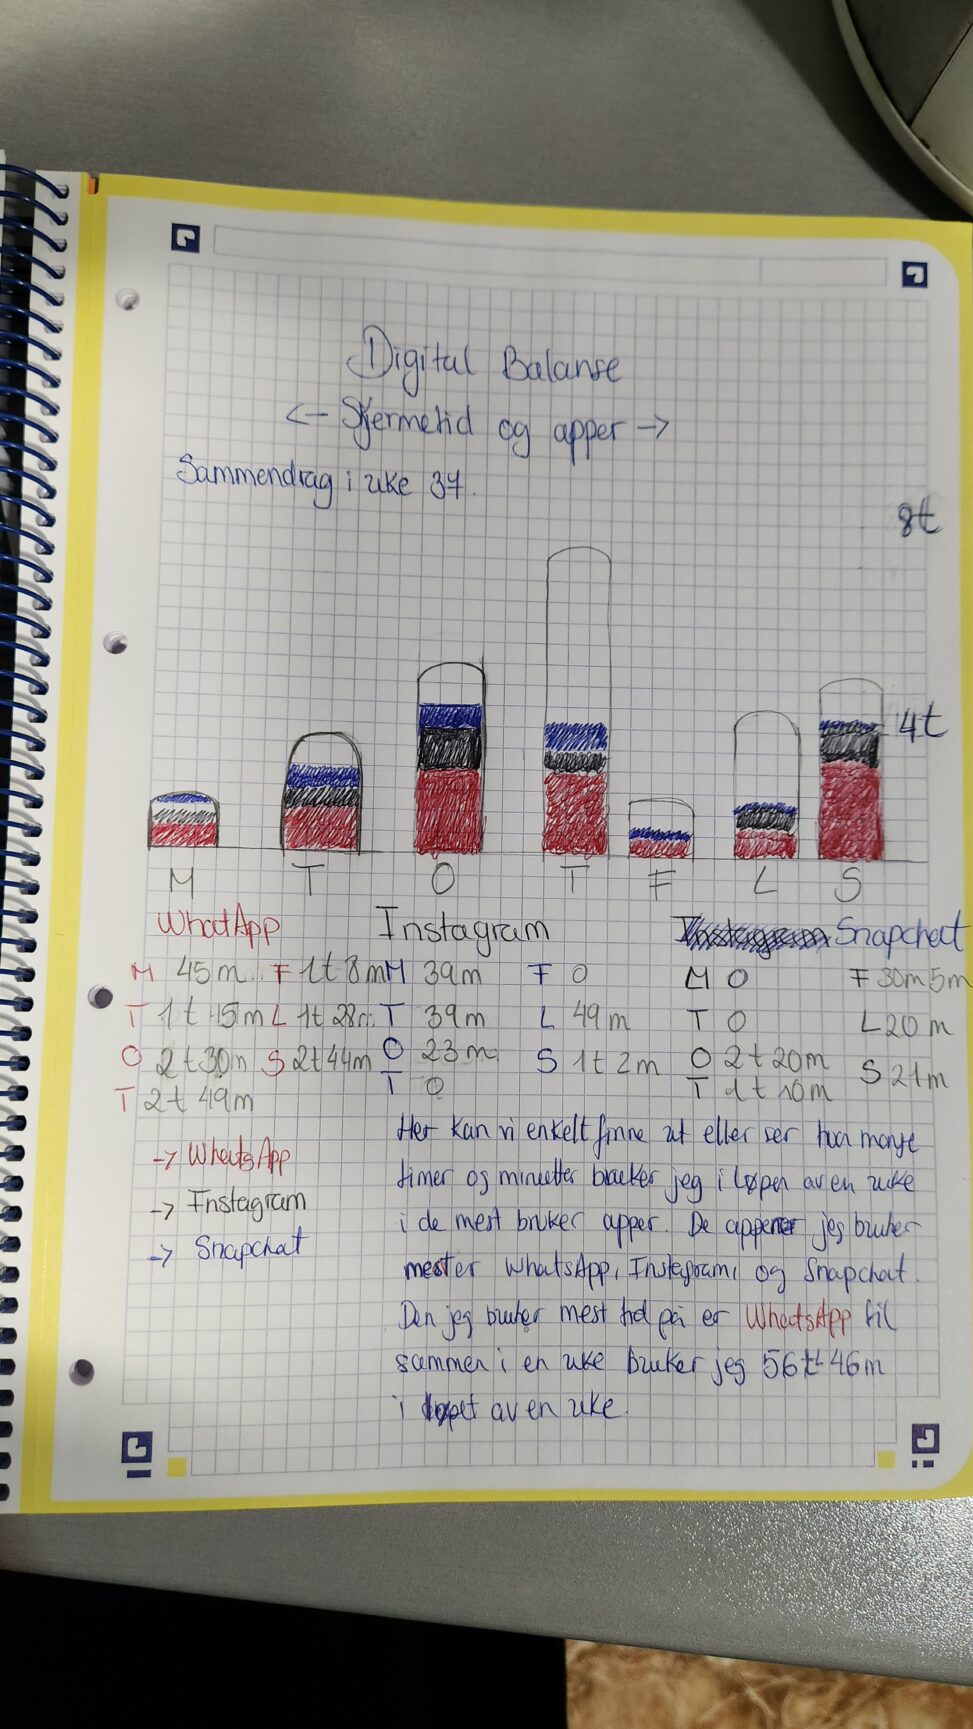 Digital Balanse
<- Skjermetid og apper ->
Sammendrag i uke 37.
8t
4t
M T O T F L S
WhatApp Instagram Snapchat
M 45m F 1t 8m M 39m F 0 M 0 F 30m 5m
T 1t 15m L 1t 28m T 39m L 49m T 0 L 20m
O 2t 30m S 2t 44m O 23m S 1t 2m O 2t 20m S 21m
T 2t 49m T 0 T 1t 10m
-> WhatsApp
-> Instagram
-> Snapchat
Her kan vi enkelt finne ut eller ser hvor mange
timer og minutter bruker jeg i løpen av en uke
i de mest bruker apper. De appener jeg bruker
mester WhatsApp, Instagram, og Snapchat.
Den jeg bruker mest tid på er WhatsApp til
sammen i en uke bruker jeg 56t 46m
i løpet av en uke.